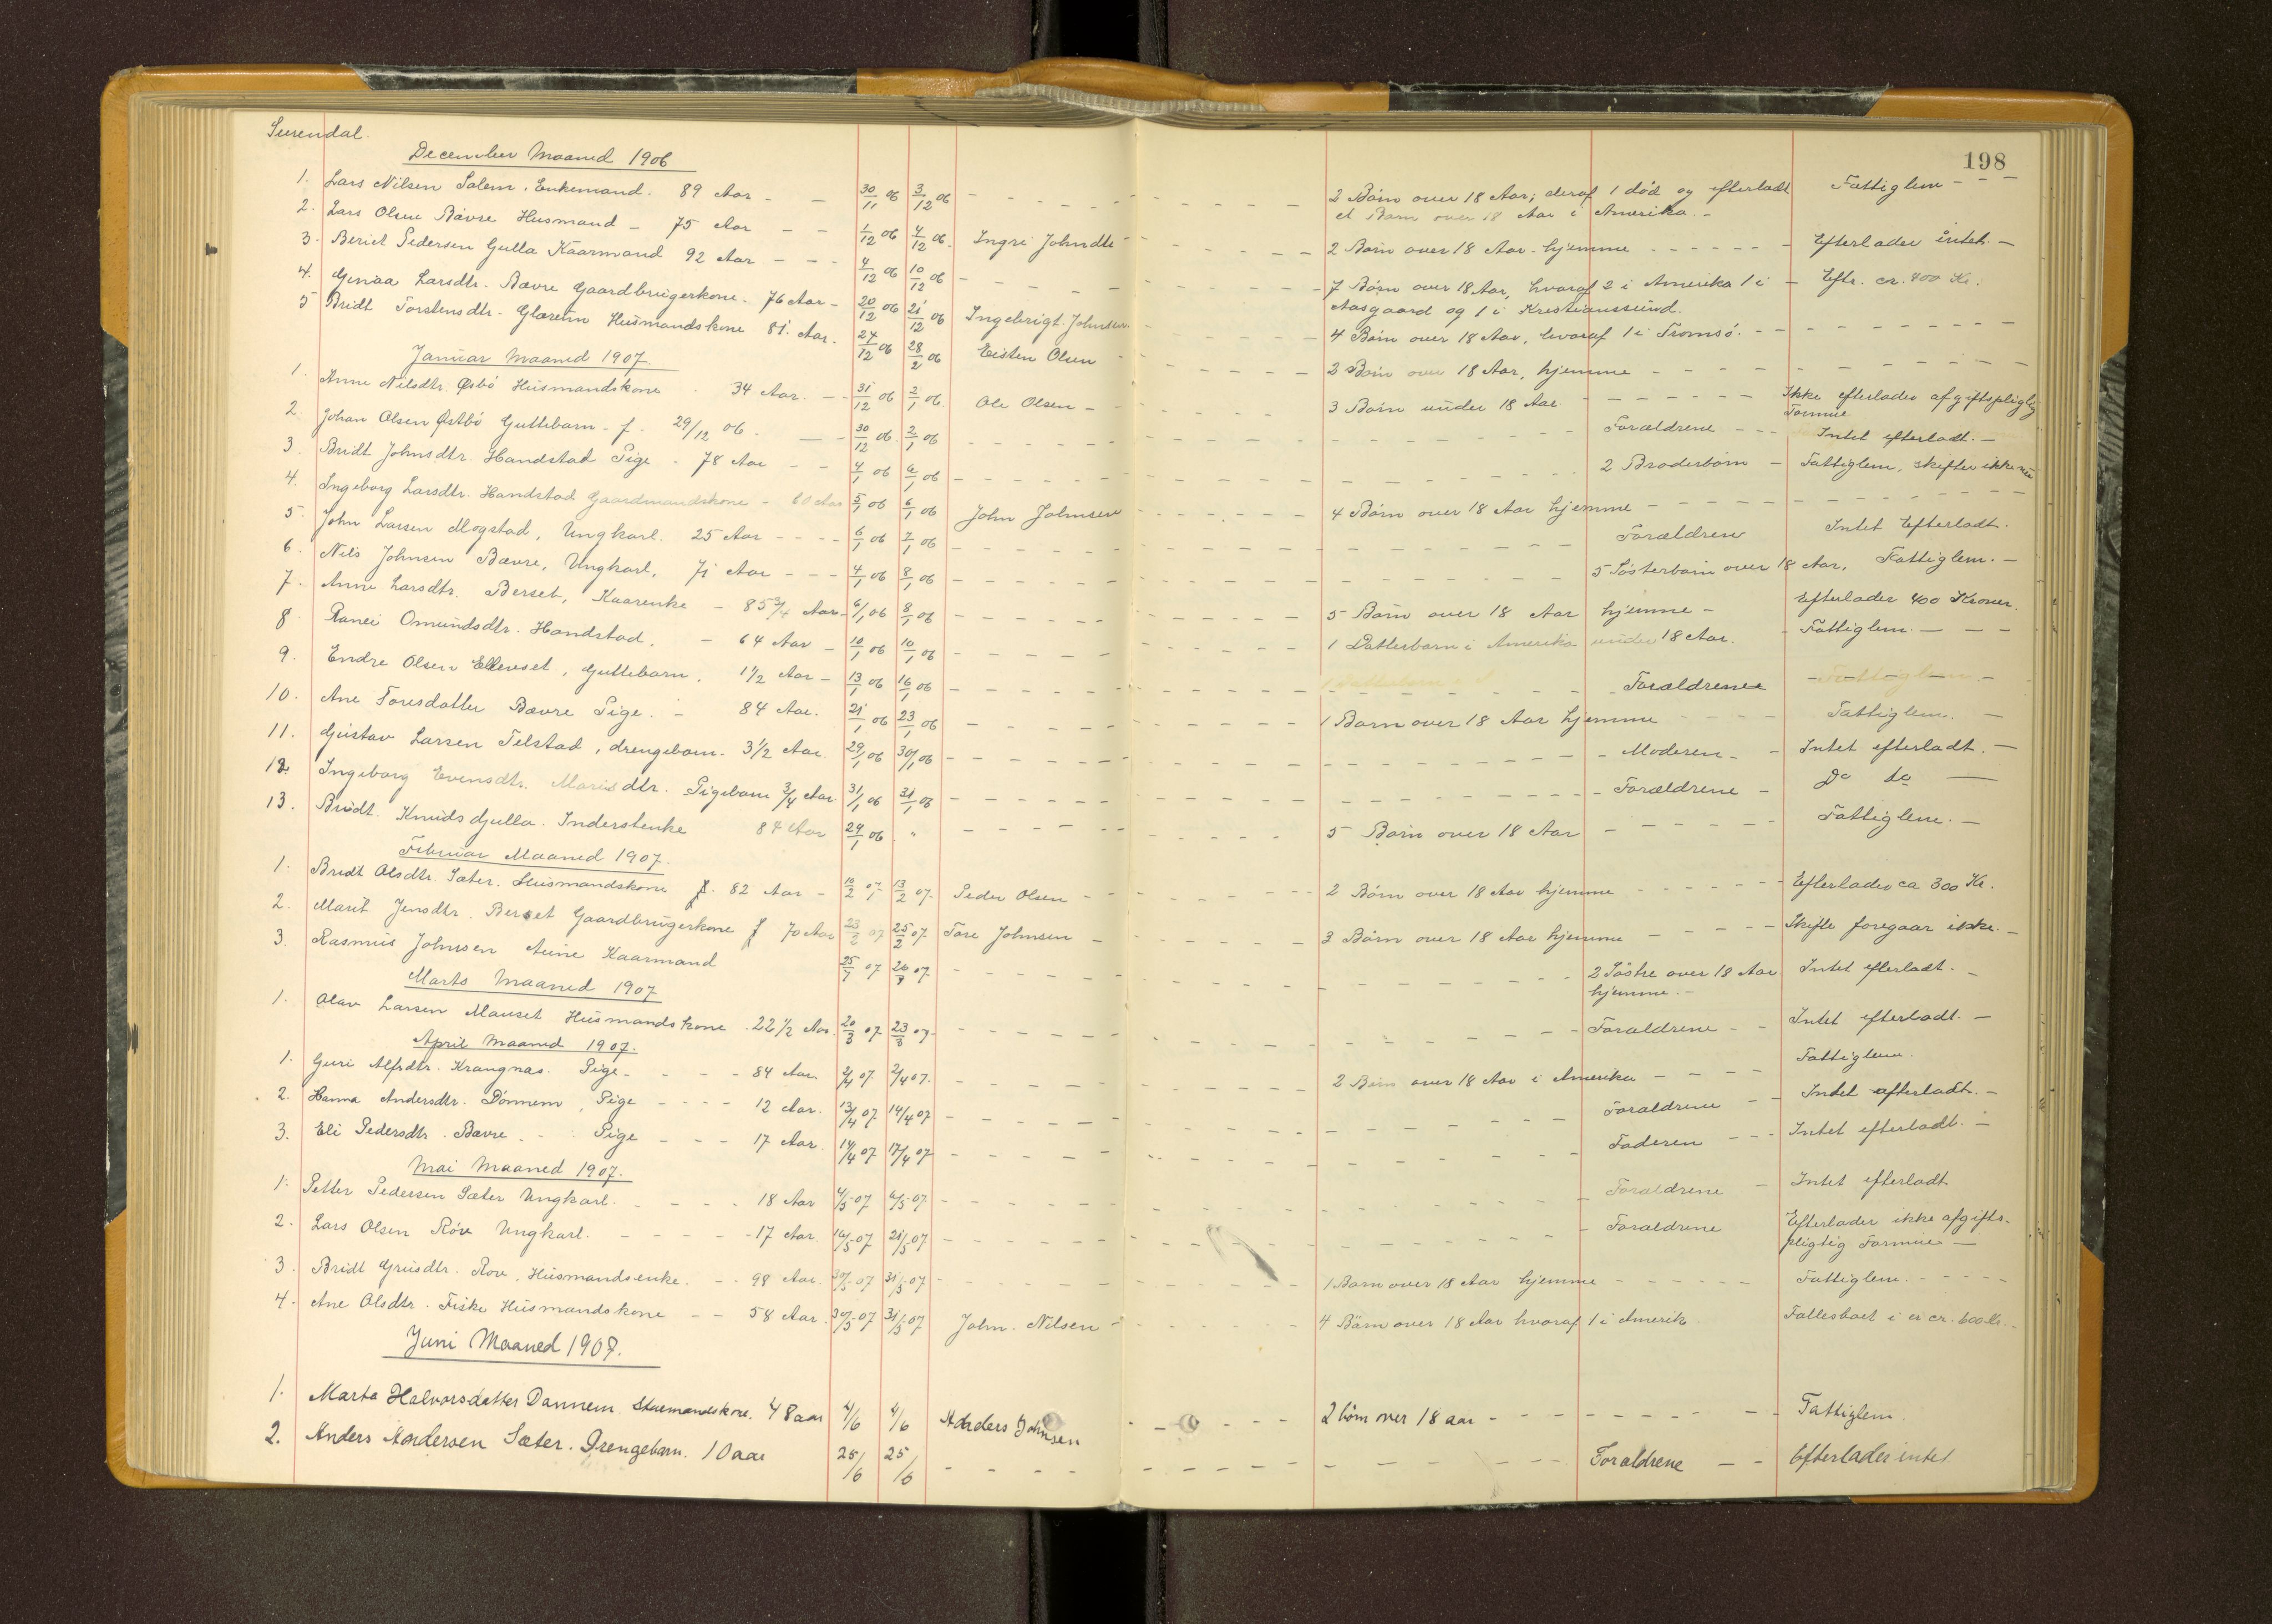 198
Surendal.
December Maaned 1906
1. Lars Nilsen Salem. Enkemand. 89 Aar - - 30/11 06 3/12 06 - 2 Børn over 18 Aar; deraf 1 död og efterladt Fattiglem - - -
et Barn over 18 Aar i Amerika. -
2. Lars Olsen Bævre Husmand - 75 Aar - - 1/12 06 4/12 06. Ingri Johndtr - 2 Børn over 18 Aar - hjemme - Efterlader intet. -
3. Beriet Pedersen Gulla Kaarmand 92 Aar - - - 4/12 06 10/12 06 - 7 Børn over 18 Aar, hvoraf 2 i Amerika 1 i - Eftr. cr. 400 Kr.
Aasgaard og 1 i Kristianssund.
4. Larsdtr. Bævre Gaardbrugerkone. 76 Aar - 20/12 06 21/12 06 Ingebrigt Johnsen - 4 Børn over 18 Aar, hvoraf 1 i Tromsö. - -
5 Bridt Torstensdtr. Glærem Husmandskone 81. Aar. 27/12 06 28/2 06 Eisten Olsen - 2 Børn over 18 Aar, hjemme - - -
Januar Maaned 1907.
1. Anne Nilsdtr. Øsbö Husmandskone . 34 Aar. - - 31/12 06 2/1 06. Ole Olsen - 3 Børn under 18 Aar - Ikke efterlader afgiftspligtig
Formue
2. Johan Olsen Østbö Guttebarn - f. 29/12 06. - 30/12 06. 2/1 06 - Forældrene - - - Intet efterladt. -
3. Bridt Johnsdtr. Handstad Pige - 78 Aar - - 4/1 06 6/1 06 - 2 Broderbörn - Fattiglem, skifter ikke
4. Ingeborg Larsdtr. Handstad Gaardmandskone - 60 Aar 5/1 06 6/1 06 John Johnsen - 4 Børn over 18 Aar hjemme - - -
5. John Larsen Mogstad, Ungkarl. 25 Aar - - - - 6/1 06 7/1 06 - Forældrene Intet Efterladt.
6. Nils Johnsen Bævre, Ungkarl, 71 Aar - - - 4/1 06 8/1 06 - 5 Søsterbørn over 18 Aar. Fattiglem. -
7. Anne Larsdtr. Berset, Kaarenke - 85 3/4 Aar - 6/1 06 8/1 06 - 5 Børn over 18 Aar hjemme - Efterlader 400 Kroner.
8. Ranei Omundsdtr. Handstad. - 64 Aar - 10/1 06 10/1 06 - 1 Datterbarn i Amerika under 18 Aar. - Fattiglem. - - -
9. Endre Olsen Ellevset, Guttebarn. 1 1/2 Aar - 13/1 06 16/1 06 - Forældrene - Fattiglem -
10. Ane Toresdatter Bævre Pige. - 84 Aar. 21/1 06 23/1 06 - 1 Barn over 18 Aar hjemme - Fattiglem. -
11. Gustav Larsen Telstad, drengebarn. 3 1/2 Aar. 29/1 06 30/1 06 - Moderen - - Intet efterladt. -
12. Ingeborg Evensdtr. Pigebarn 3/4 Aar. 31/1 06 31/1 06 - Forældrene - Do do -
13. Bridt. Knuds Gulla. Inderstenke 84 Aar 24/1 06 . " - 5 Børn over 18 Aar - Fattiglem. -
Februar Maaned 1907.
1. Bridt Olsdtr. Sæter. Husmandskone f. 82 Aar - 10/2 07 13/2 07. Peder Olsen - 2 Børn over 18 Aar hjemme - Efterlader ca 300 Kr.
2. Marit Jensdtr. Berset Gaardbrugerkone f 70 Aar 23/2 07 25/2 07 Tore Johnsen - 3 Børn over 18 Aar hjemme - Skifte foregaar ikke. -
3. Rasmus Johnsen Aune Kaarmand 25/7 07 26/7 07 - 2 Søstre over 18 Aar Intet efterladt. -
hjemme. -
Marts Maaned 1907
1. Olav Larsen Mauset Husmandskone . 22 1/2 Aar. 20/3 07 23/3 07 - Forældrene - - Intet efterladt. -
April Maaned 1907.
1. Guri Alfsdtr. Krangnæs. Pige - - - - 84 Aar 2/4 07. 2/4 07. - 2 Børn over 18 Aar i Amerika - - - Fattiglem.
2. Hanna Andersdtr. Dönnem, Pige - - - - 12 Aar. 13/4 07 14/4 07 - Forældrene - - Intet efterladt. -
3. Eli Pedersdtr. Bævre. - Pige - - - 17 Aar. 14/4 07 17/4 07 - Faderen - - - Intet efterladt. -
Mai Maaned 1907.
1. Petter Pedersen Sæter Ungkarl. - - - 18 Aar 4/5 07 6/5 07. - Forældrene - Intet efterladt
2. Lars Olsen Röv Ungkarl. - - - - 17 Aar. 16/5 07 21/5 07 - Forældrene Efterlader ikke afgifts-
pligtig Formue -
3. Bridt Grusdtr. Röv. Husmandsenke. - - 98 Aar. 30/5 07 31/5 07 - 1 Barn over 18 Aar hjemme - Fattiglem. - - -
4. Ane Olsdtr. Fiske Husmandskone - - 58 Aar. 30/5 07 31/5 07 John. Nilsen - 4 Børn over 18 Aar hvoraf 1 i Amerik. Fællesboet i er cr. 600 Kr.
Juni Maaned 1907.
1. Marta Halvorsdatter Dannem 48 aar 4/6 4/6 Anders Johnsen - 2 börn over 18 aar - Fattiglem.
2. Anders Andersen Sæter. Drengebarn. 10 aar 25/6 25/6 - Forældrene - - Efterlader intet